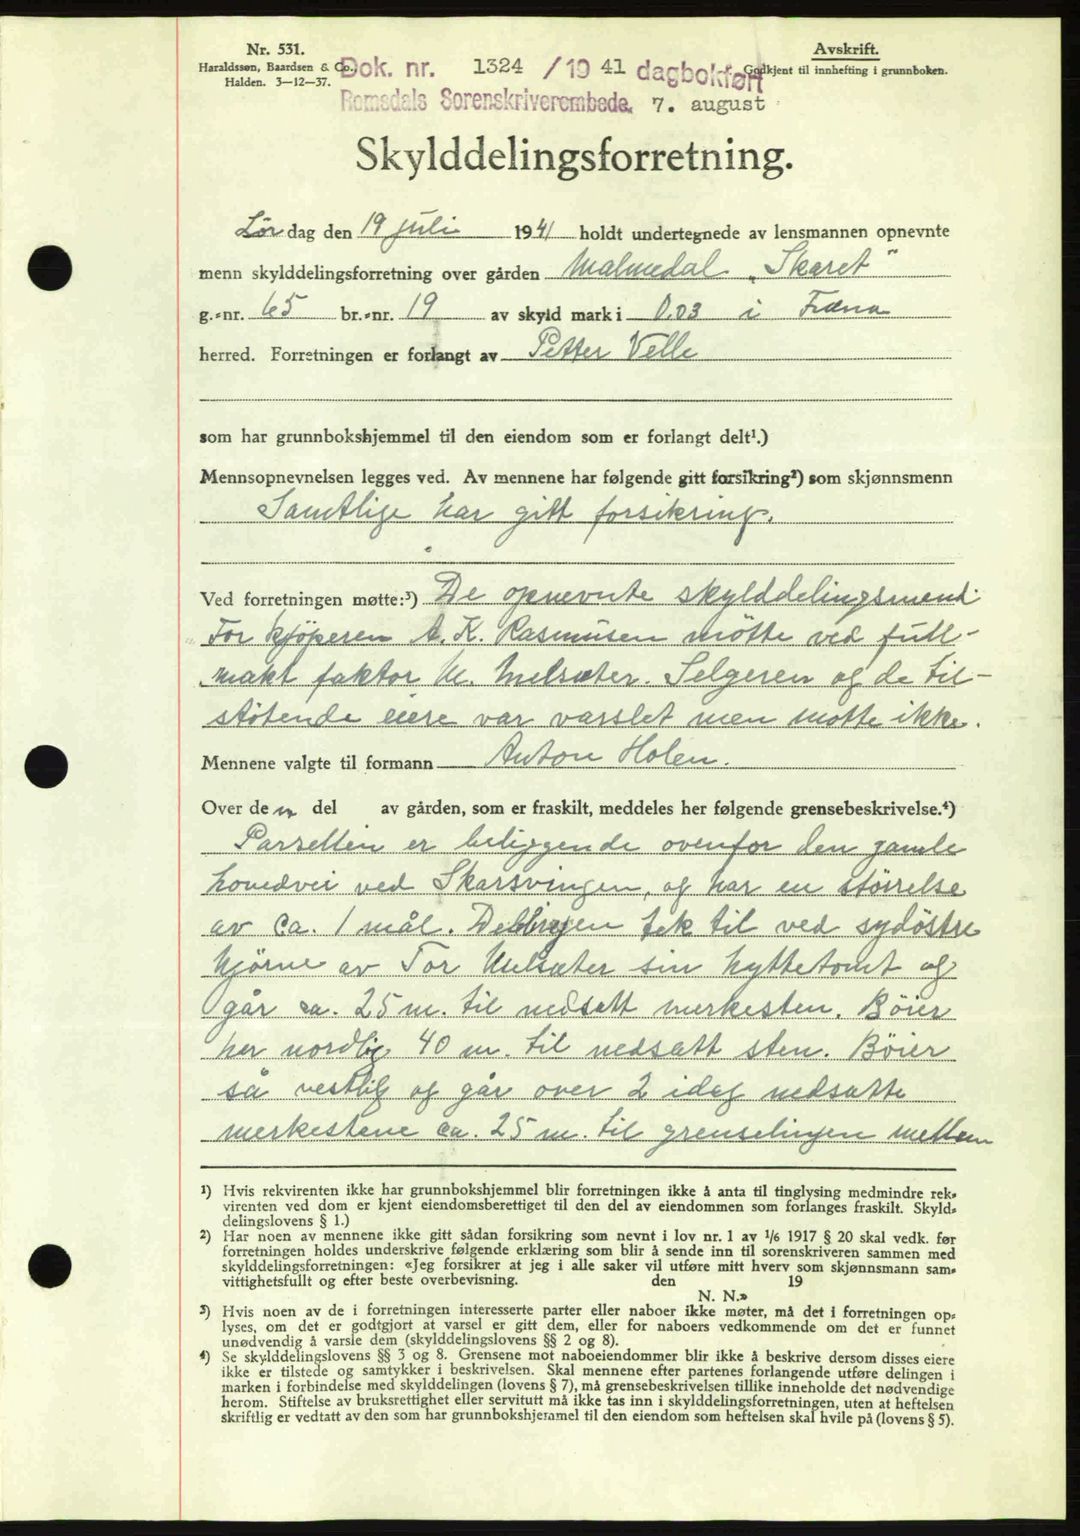 Nr. 531.
Haraldssøn, Baardsen & Co.,
Halden. 3-12-37.
Avskrift.
Godkjent til innhefting i grunnboken.
Dok. nr. 1324 /19 41 dagbokført
Romsdals Sorenskriverembede. 7. august
Skylddelingsforretning.
Lør dag den 19 juli 1941 holdt undertegnede av lensmannen opnevnte
menn skylddelingsforretning over gården Malmedal „Skaret“
g.-nr. 65 br.-nr. 19 av skyld mark i 0.03 i Fræna
herred. Forretningen er forlangt av Petter Velle
som har grunnbokshjemmel til den eiendom som er forlangt delt¹.)
Mennsopnevnelsen legges ved. Av mennene har følgende gitt forsikring²) som skjønnsmenn
Samtlige har gitt forsikring.
Ved forretningen møtte:³) De opnevnte skylddelingsmenn.
For kjöperen A. K. Rasmusen mötte ved full-
makt faktor M. Melsæter. Selgeren og de til-
stötende eiere var varslet men motte ikke.
Mennene valgte til formann Anton Holen.
Over den del av gården, som er fraskilt, meddeles her følgende grensebeskrivelse.⁴)
Parsellen er beliggende ovenfor den gamle
hovedvei ved Skarsvingen, og har en störrelse
av ca. 1 mål. Delelinjen tek til ved sydöstre
hjörne av Tor Melsæter sin hyttetomt og
går ca. 25 m. til nedsatt merkesten. Böier
her nordlig 40 m. til nedsatt sten. Böier
så vestlig og går over 2 idag nedsatte
merkestene ca. 25 m. til grenselinjen mellem
¹) Hvis rekvirenten ikke har grunnbokshjemmel blir forretningen ikke å anta til tinglysing medmindre rek-
virenten ved dom er kjent eiendomsberettiget til den del av eiendommen som forlanges fraskilt. Skyld-
delingslovens § 1.)
²) Har noen av mennene ikke gitt sådan forsikring som nevnt i lov nr. 1 av 1/6 1917 § 20 skal vedk. før
forretningen holdes underskrive følgende erklæring som blir å sende inn til sorenskriveren sammen med
skylddelingsforretningen: «Jeg forsikrer at jeg i alle saker vil utføre mitt hverv som skjønnsmann sam-
vittighetsfullt og efter beste overbevisning. den 19
N. N.»
³) Hvis noen av de i forretningen interesserte parter eller naboer ikke møter, må det i forretningen op-
lyses, om det er godtgjort at varsel er gitt dem, eller for naboers vedkommende om det er funnet
unødvendig å varsle dem (skylddelingslovens §§ 2 og 8).
⁴) Se skylddelingslovens §§ 3 og 8. Grensene mot naboeiendommer blir ikke å beskrive dersom disses eiere
ikke er tilstede og samtykker i beskrivelsen. Skal mennene efter partenes forlangende utføre delingen i
marken i forbindelse med skylddelingen (lovens § 7), må grensebeskrivelsen tillike inneholde det nødvendige
herom. Stiftelse av bruksrettighet eller servitutt må ikke tas inn i skylddelingsforretningen, uten at heftelsen
skriftlig er vedtatt av den som har grunnbokshjemmel til den eiendom som heftelsen skal hvile på (lovens § 5).